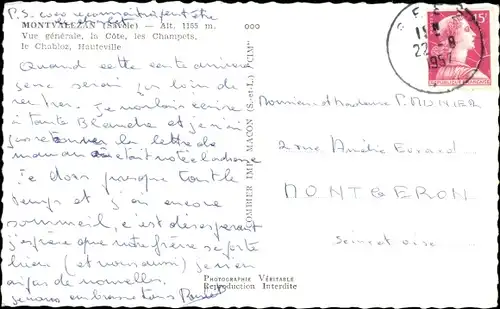 P.S. coco reconnaitra peut être
le chalet
MONTVALEZAN (Savoie) — Alt. 1155 m.
Vue générale, la Côte, les Champets,
le Chabloz, Hauteville
Quand cette carte arrivera
je ne serai pas loin de
rentrer. Je voulais écrire
à tante Blanche et je n'ai
pas retrouvé la lettre de
maman où était notée l'adresse
Je dors presque tout le
temps et j'ai encore
sommeil, c'est désespérant
j'espère que notre frère se porte
bien (et vous aussi) je n'en
ai pas de nouvelles.
je vous embrasse tous
COMBIER IMP. MACON (S.-et-L.) "CIM"
15F
22 -8
1957
Monsieur et madame P. MONIER
2 rue Amélie Evrard
MONTGERON
Seine et oise
PHOTOGRAPHIE VÉRITABLE
Reproduction Interdite